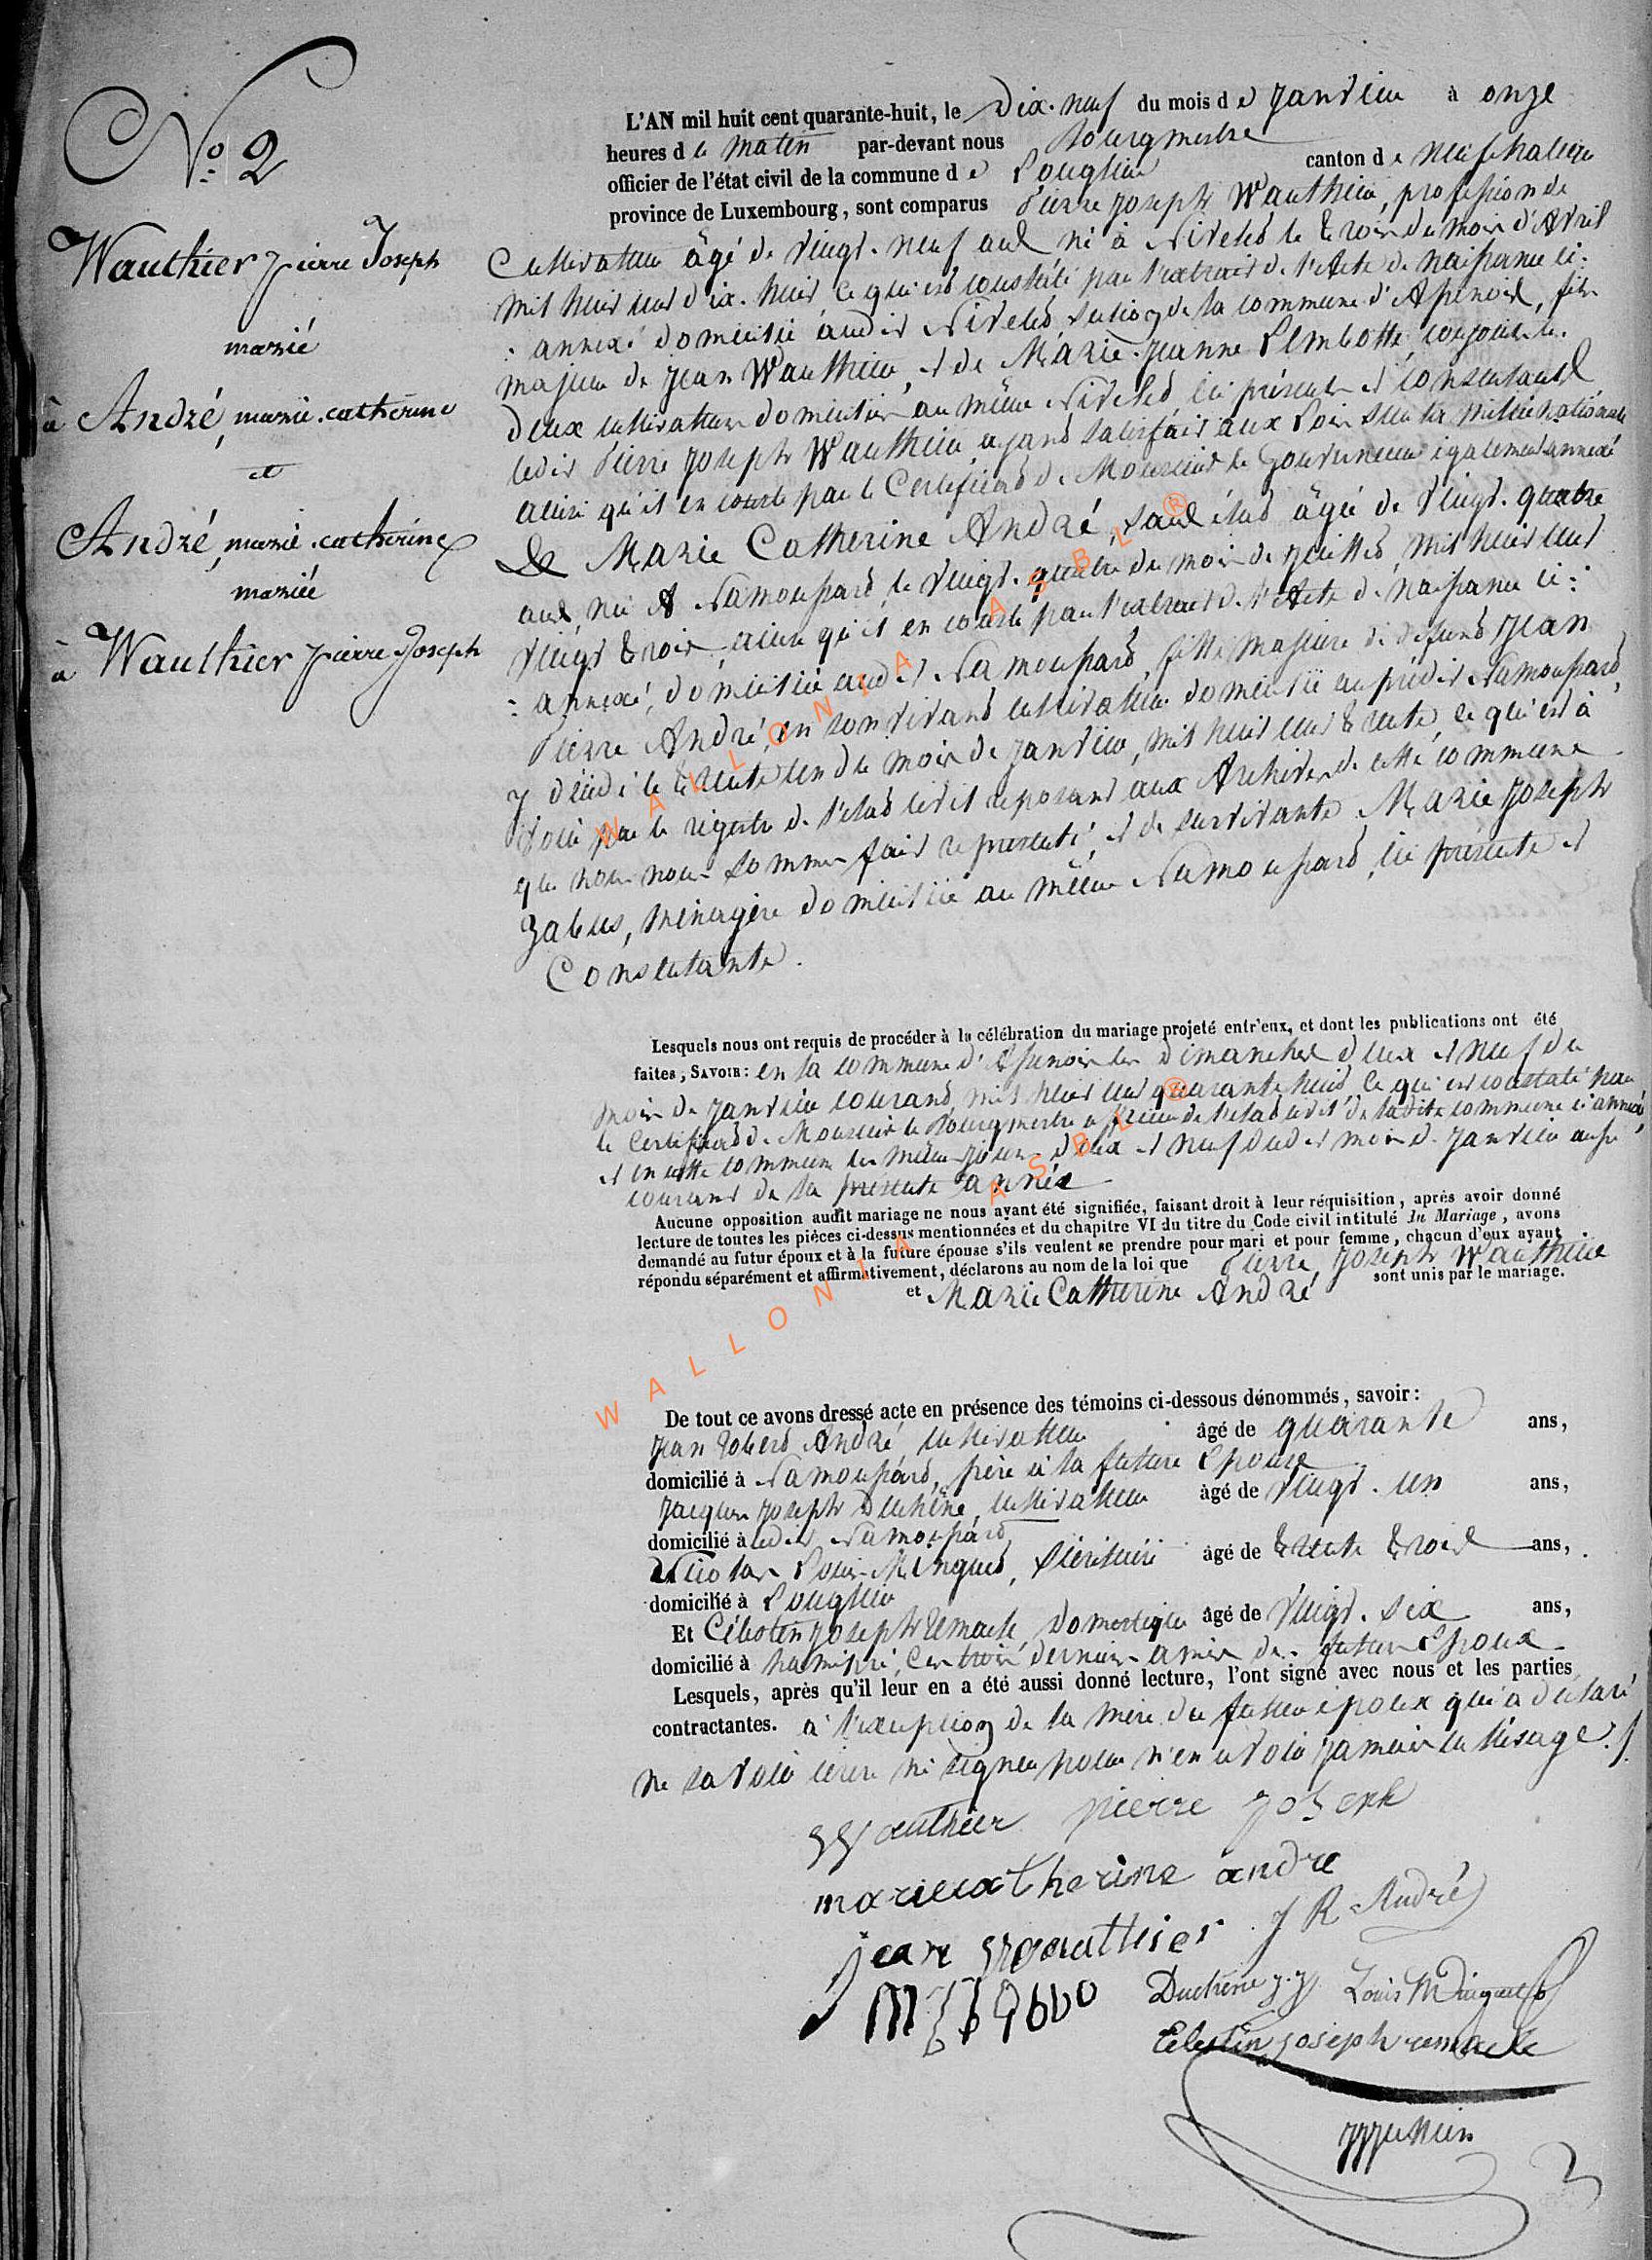 N.o 2
Wauthier pierre Joseph
marié
à André, marie catherine
et
André, marie catherine
mariée
à Wauthier pierre Joseph
L'AN mil huit cent quarante-huit, le Dix-neuf du mois de Janvier à onze
heures du matin par-devant nous Bourgmestre
officier de l'état civil de la commune de Longlier canton de Neufchateau
province de Luxembourg, sont comparus Pierre Joseph Wauthier, profession de
Cultivateur âgé de vingt-neuf ans né à Nivelet le trois du mois d'Avril
mil huit cent dix-huit ce qui est constaté par l'extrait de l'Acte de naissance ci-
annexé domicilié audit Nivelet, section de la commune d'Assenois, fils
majeur de Jean Wauthier, et de Marie-Jeanne conjoints
deux cultivateurs domiciliés au même Nivelet, ici présents et consentants
ledit Pierre Joseph Wauthier ayant satisfait aux Lois sur la milice nationale
ainsi qu'il en conste par le Certificat de Monsieur le Gouverneur également annexé
Et Marie Catherine André, sans état âgée de vingt-quatre
ans, née à Namoussart le vingt-quatre du mois de juillet, mil huit cent
vingt trois, ainsi qu'il en conste par l'extrait de l'Acte de naissance ci-
annexé, domiciliée audit Namoussart, fille majeure de défunt Jean
Pierre André, en son vivant cultivateur domicilié au prédit Namoussart,
y décédé le trente un du mois de janvier, mil huit cent trente, ce qui est à
voir par le registre de l'état civil reposant aux Archives de cette commune
que nous nous sommes fait représenter, et de survivante Marie Joseph
Zabus, ménagère domiciliée au même Namoussart, ici présente et
Consentante.
Lesquels nous ont requis de procéder à la célébration du mariage projeté entr'eux, et dont les publications ont été
faites, SAVOIR: en la commune d'Assenois les Dimanches deux et neuf du
mois de janvier courant, mil huit cent quarante huit, ce qui est constaté par
le Certificat de Monsieur le Bourgmestre officier de l'état civil de ladite commune ci annexé,
et en cette commune les mêmes jours deux et neuf dudit mois de janvier aussi
courant de la présente année
Aucune opposition audit mariage ne nous ayant été signifiée, faisant droit à leur réquisition, après avoir donné
lecture de toutes les pièces ci-dessus mentionnées et du chapitre VI du titre du Code civil intitulé Du Mariage, avons
demandé au futur époux et à la future épouse s'ils veulent se prendre pour mari et pour femme, chacun d'eux ayant
répondu séparément et affirmativement, déclarons au nom de la loi que Pierre Joseph Wauthier
et Marie Catherine André sont unis par le mariage.
De tout ce avons dressé acte en présence des témoins ci-dessous dénommés, savoir:
Jean Robert André, cultivateur âgé de quarante ans,
domicilié à Namoussart, frère à la future Epouse
Jacques Joseph Duchêne, cultivateur âgé de vingt-un ans,
domicilié à udit Namoussart
Nicolas Louis Minguet, âgé de trente trois ans,
domicilié à Longlier
Et Célestin Joseph Remacle, Domestique âgé de vingt-six ans,
domicilié à hamipré, Ces trois derniers amis des futurs Epoux
Lesquels, après qu'il leur en a été aussi donné lecture, l'ont signé avec nous et les parties
contractantes. à l'exception de la mère du futur époux qui a déclaré
ne savoir écrire ni signer pour n'en avoir jamais eu l'usage.
Wauthier pierre joseph
mariecatherine andre
jean Wauthier J R André
Duchêne J.J. Louis Minguet
Celestin joseph remacle
WALLONIA ASBL ®
WALLONIA ASBL ®